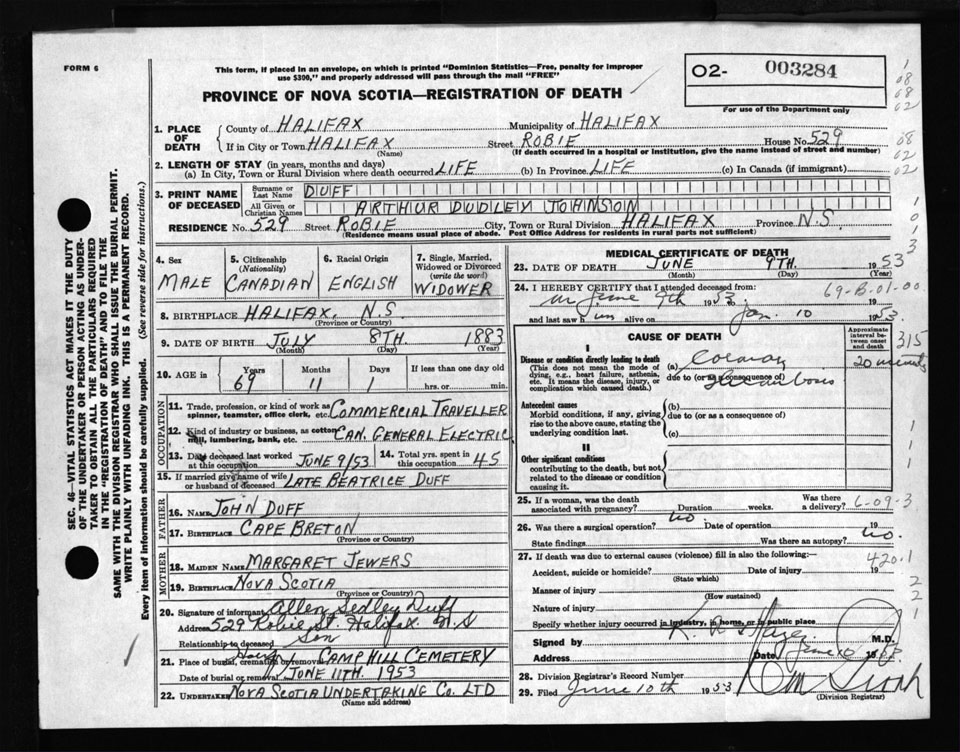 FORM 6
This form, if placed in an envelope, on which is printed "Dominion Statistics—Free, penalty for improper
use $300," and properly addressed will pass through the mail "FREE"
PROVINCE OF NOVA SCOTIA—REGISTRATION OF DEATH
02- 003284
For use of the Department only
1. PLACE OF DEATH
County of HALIFAX Municipality of HALIFAX
If in City or Town HALIFAX Street ROBIE House No. 529
(Name) (If death occurred in a hospital or institution, give the name instead of street and number)
2. LENGTH OF STAY (in years, months and days)
(a) In City, Town or Rural Division where death occurred LIFE (b) In Province LIFE (c) In Canada (if immigrant)
3. PRINT NAME OF DECEASED
Surname or Last Name DUFF
All Given or Christian Names ARTHUR DUDLEY JOHNSON
RESIDENCE No. 529 Street ROBIE City, Town or Rural Division HALIFAX Province N.S.
(Residence means usual place of abode. Post Office Address for residents in rural parts not sufficient)
4. Sex MALE
5. Citizenship (Nationality) CANADIAN
6. Racial Origin ENGLISH
7. Single, Married, Widowed or Divorced (write the word) WIDOWER
8. BIRTHPLACE HALIFAX, N.S.
(Province or Country)
9. DATE OF BIRTH JULY 8TH. 1883
(Month) (Day) (Year)
10. AGE in Years Months Days If less than one day old
69 11 1 hrs. or min.
OCCUPATION
11. Trade, profession, or kind of work as spinner, teamster, office clerk, etc. COMMERCIAL TRAVELLER
12. Kind of industry or business, as cotton mill, lumbering, bank, etc. CAN. GENERAL ELECTRIC
13. Date deceased last worked at this occupation JUNE 9/53
14. Total yrs. spent in this occupation 45
15. If married give name of wife or husband of deceased LATE BEATRICE DUFF
FATHER
16. NAME JOHN DUFF
17. BIRTHPLACE CAPE BRETON
(Province or Country)
MOTHER
18. MAIDEN NAME MARGARET JEWERS
19. BIRTHPLACE NOVA SCOTIA
(Province or Country)
20. Signature of informant Allen Sedley Duff
Address 529 Robie St. Halifax N.S
Relationship to deceased Son
21. Place of burial, cremation or removal CAMP HILL CEMETERY
Date of burial or removal JUNE 11TH. 1953
22. UNDERTAKER NOVA SCOTIA UNDERTAKING CO. LTD
(Name and address)
MEDICAL CERTIFICATE OF DEATH
23. DATE OF DEATH JUNE 9TH. 1953
(Month) (Day) (Year)
24. I HEREBY CERTIFY that I attended deceased from: 69-B-01-00
on June 9th 1953 19
and last saw him alive on Jan. 10 1953.
CAUSE OF DEATH
Approximate interval between onset and death
315
I
Disease or condition directly leading to death
(This does not mean the mode of dying, e.g., heart failure, asthenia, etc. It means the disease, injury, or complication which caused death.)
(a) Coronary 20 minutes
due to (or as consequence of) Thrombosis
Antecedent causes
Morbid conditions, if any, giving rise to the above cause, stating the underlying condition last.
(b)
due to (or as a consequence of)
(c)
II
Other significant conditions
contributing to the death, but not related to the disease or condition causing it.
25. If a woman, was the death associated with pregnancy? Duration weeks. Was there a delivery?
6-09-3
26. Was there a surgical operation? no. Date of operation 19
State findings Was there an autopsy? no.
27. If death was due to external causes (violence) fill in also the following:
420.1
Accident, suicide or homicide? Date of injury 19
(State which)
Manner of injury
(How sustained)
Nature of injury
Specify whether injury occurred in industry, in home, or in public place
Signed by M.D.
Address Date June 10
28. Division Registrar's Record Number
29. Filed June 10th 1953
(Division Registrar)
SEC. 46—VITAL STATISTICS ACT MAKES IT THE DUTY
OF THE UNDERTAKER OR PERSON ACTING AS UNDER-
TAKER TO OBTAIN ALL THE PARTICULARS REQUIRED
IN THE "REGISTRATION OF DEATH" AND TO FILE THE
SAME WITH THE DIVISION REGISTRAR WHO SHALL ISSUE THE BURIAL PERMIT.
WRITE PLAINLY WITH UNFADING INK. THIS IS A PERMANENT RECORD.
Every item of information should be carefully supplied. (See reverse side for instructions.)